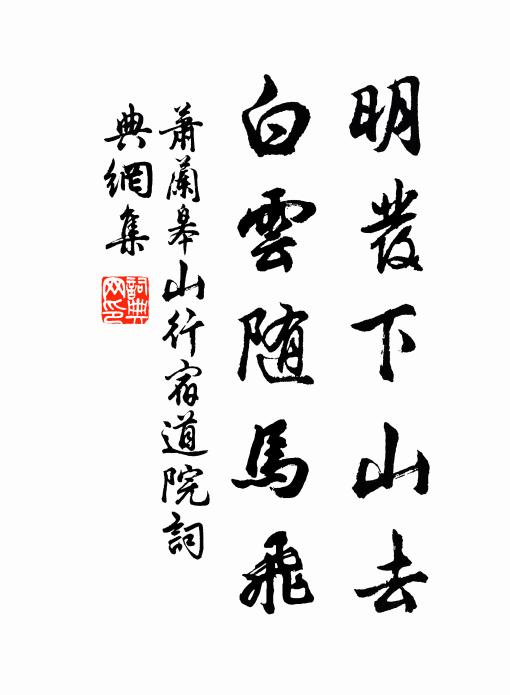 明發下山去
白雲随馬飛
蕭蘭皋山行宿道院詞
典網集
詞典網印